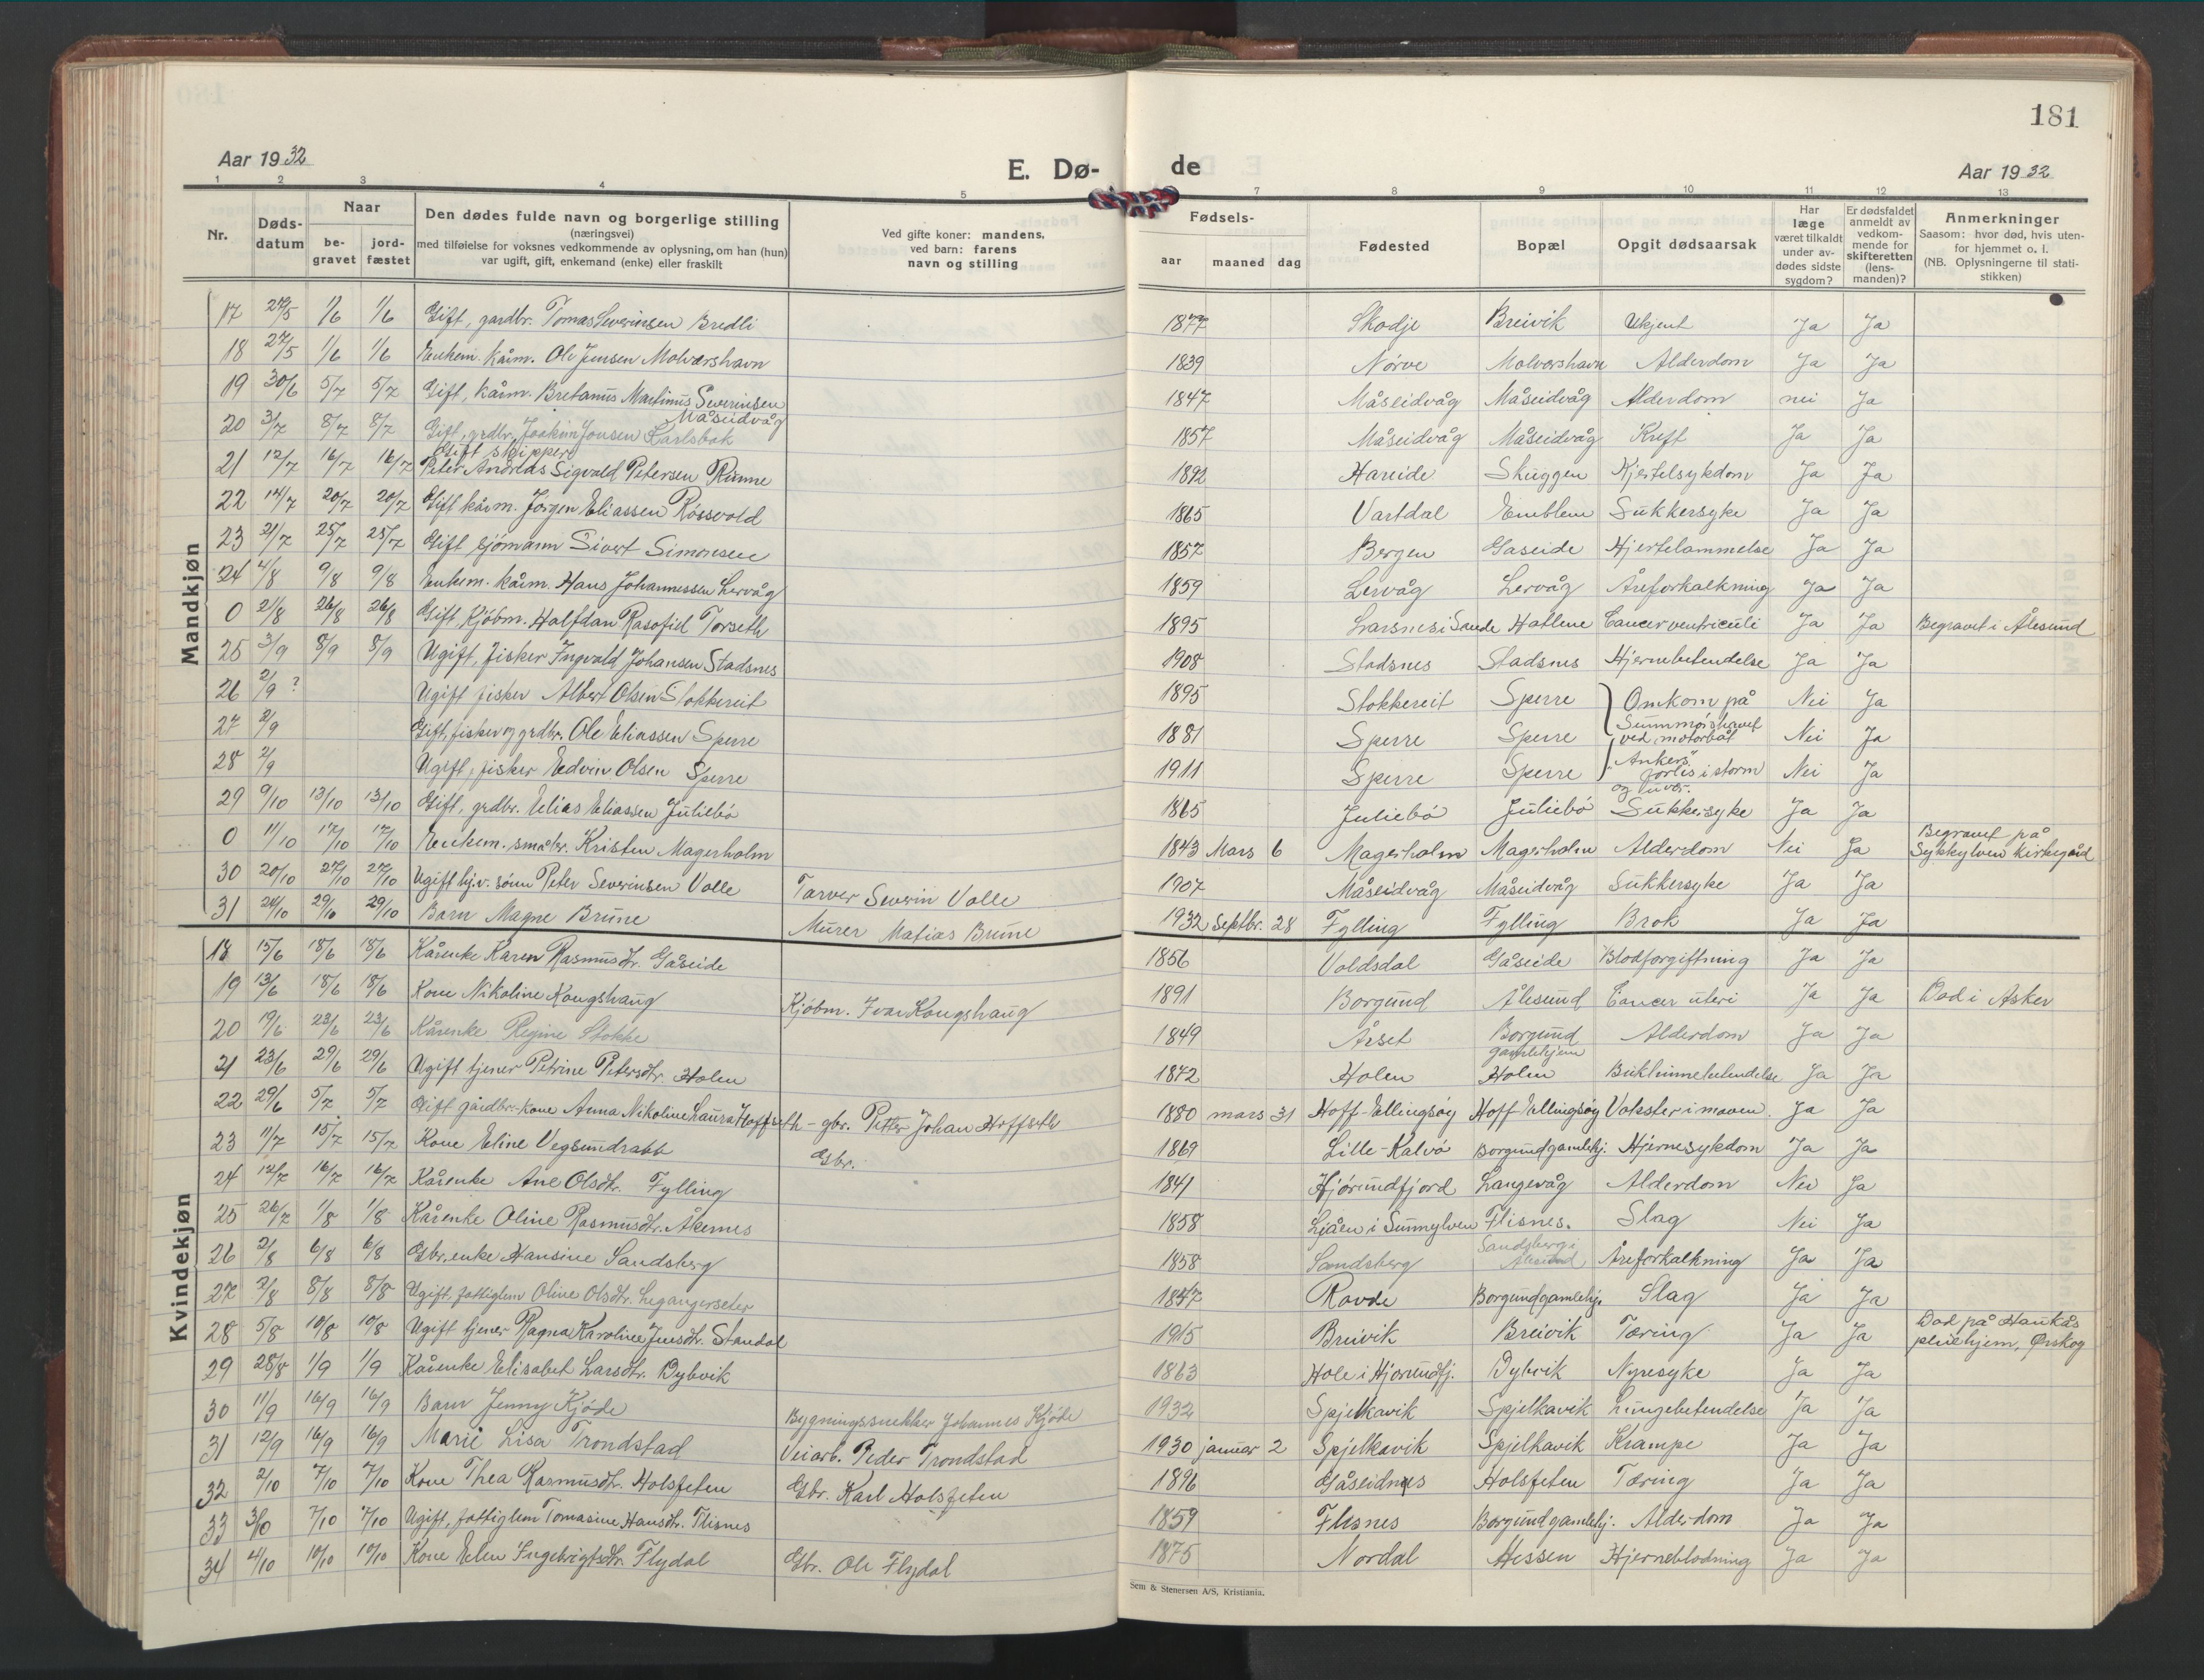 181
Aar 1932
E. Dø-de
Aar 1932
1 2 3 4 5 7 8 9 10 11 12 13
Nr.
Døds-datum
Naar
be-gravet
jord-fæstet
Den dødes fulde navn og borgerlige stilling
(næringsvei)
med tilføielse for voksnes vedkommende av oplysning, om han (hun)
var ugift, gift, enkemand (enke) eller fraskilt
Ved gifte koner: mandens,
ved barn: farens
navn og stilling
Fødsels-
aar maaned dag
Fødested
Bopæl
Opgit dødsaarsak
Har læge været tilkaldt under av-dødes sidste sygdom?
Er dødsfaldet anmeldt av vedkom-mende for skifteretten (lens-manden)?
Anmerkninger
Saasom: hvor død, hvis uten-for hjemmet o. l.
(NB. Oplysningerne til stati-stikken)
Mandkjøn
17 29/5 1/6 1/6 Gift, gardbr. Tomas Severinsen Bredli 1877 Skodje Breivik Ukjent Ja Ja
18 27/5 1/6 1/6 Enkem. kårm. Ole Jensen Molværshavn 1839 Nørve Molvershavn Alderdom Ja Ja
19 30/6 5/7 5/7 Gift, kårm. Bretanus Martinus Severinsen Måseidvåg 1847 Måseidvåg Måseidvåg Alderdom nei Ja
20 3/7 8/7 8/7 Gift, grdbr. Joakim Jonsen Karlsbak 1857 Måseidvåg Måseidvåg Kreft Ja Ja
21 12/7 16/7 16/7 Gift skipper Peter Andreas Sigvald Petersen Rønne 1892 Hareide Skuggen Kjertelsykdom Ja Ja
22 14/7 20/7 20/7 Gift kårm. Jørgen Eliassen Røssevold 1865 Vartdal Emblem Sukkersyke Ja Ja
23 21/7 25/7 25/7 Gift sjømann Sivert Simonsen 1857 Bergen Gaseide Hjertelammelse Ja Ja
24 4/8 9/8 9/8 Enkem. kårm. Hans Johannessen Lervåg 1859 Lervåg Lervåg Åreforkalkning Ja Ja
0 21/8 26/8 26/8 Gift, Kjøbm. Halfdan Rasofiel Torseth 1895 Larsnes i Sande Hatlene Cancer ventriculi Ja Ja Begravet i Ålesund
25 3/9 8/9 8/9 Ugift, fisker Ingvald Johansen Stadsnes 1908 Stadsnes Stadsnes Hjernebetendelse Ja Ja
26 2/9 ? Ugift fisker Albert Olsen Stokkereit 1895 Stokkereit Sperre Omkom på Nei Ja
27 2/9 Gift, fisker og grdbr. Ole Eliassen Sperre 1881 Sperre Sperre Sunnmørshavet ved motorbåt Nei Ja
28 2/9 Ugift, fisker Edvin Olsen Sperre 1911 Sperre Sperre "Ankers" forlis i storm og uver. Nei Ja
29 9/10 13/10 13/10 Gift, grdbr. Elias Eliassen Juliebø 1865 Juliebø Juliebø Sukkersyke Ja Ja
0 11/10 17/10 17/10 Enkem. småbr. Kristen Magerholm 1843 Mars 6 Magerholm Magerholm Alderdom Nei Ja Begravet på Sykkylven Kirkegård
30 20/10 27/10 27/10 Ugift hj.v. sønn Peter Severinsen Valle Farver Severin Valle 1907 Måseidvåg Måseidvåg Sukkersyke Ja Ja
31 24/10 29/10 29/10 Barn Magne Brune Murer Matias Brune 1932 Septbr. 28 Fylling Fylling Brok Ja Ja
Kvindekjøn
18 15/6 18/6 18/6 Kårenke Karen Rasmusdtr. Gåseide 1856 Voldsdal Gåseide Blodforgiftning Ja Ja
19 13/6 18/6 18/6 Kone Nikoline Kongshaug Kjøbm. Ivar Kongshaug 1891 Borgund Ålesund Cancer uteri Ja Ja Død i Asker
20 19/6 23/6 23/6 Kårenke Regine Stokke 1849 Årset Borgund gamlehjem Alderdom Ja Ja
21 23/6 29/6 29/6 Ugift tjener Petrine Petersdtr. Holen 1842 Holen Holen Bukhinnebetendelse Ja Ja
22 29/6 5/7 5/7 Gift gårdbr.-kone Anna Nikoline Laura Hoffseth - gbr. Petter Johan Hoffseth 1880 mars 31 Hoff-Ellingsøy Hoff Ellingsøy Vekster i maven. Ja Ja
23 11/7 15/7 15/7 Kone Eline Vegsundrabb Gbr. 1869 Lille-Kalvø Borgund gamlehj. Hjernesykdom Ja Ja
24 12/7 16/7 16/7 Kårenke Ane Olsdtr. Fylling 1841 Hjørundfjord Langevåg Alderdom Nei Ja
25 26/7 1/8 1/8 Kårenke Oline Rasmusdtr. Åkernes 1858 Ljåen i Sunnylven Flisnes. Slag Nei Ja
26 2/8 6/8 6/8 Gbr. enke Hansine Sandsberg 1858 Sandsberg Sandsberg i Ålesund Åreforkalkning Ja Ja
27 2/8 8/8 8/8 Ugift fattiglem Oline Olsdtr. Legangerseter 1847 Rovde Borgund gamlehj. Slag Ja Ja
28 5/8 10/8 10/8 Ugift tjener Ragna Karoline Jensdtr. Standal 1915 Breivik Breivik Tæring Ja Ja Død på Haukås pleiehjem, Ørskog
29 28/8 1/9 1/9 Kårenke Elisabet Larsdtr. Dybvik 1863 Hole i Hjørundfj. Dybvik Nyresyke Ja Ja
30 11/9 16/9 16/9 Barn Jenny Kjøde Bygningssnekker Johannes Kjøde 1932 Spjelkavik Spjelkavik Lungebetendelse Ja Ja
31 12/9 16/9 16/9 Marie Lisa Trondstad Veiarb. Peder Trondstad 1930 januar 2 Spjelkavik Spjelkavik Krampe Ja Ja
32 2/10 7/10 7/10 Kone Thea Rasmusdtr. Holsfeten Gbr. Karl Holsfeten 1896 Gåseidnes Holsfeten Tæring Ja Ja
33 3/10 7/10 7/10 Ugift, fattiglem Tomasine Hansdtr. Flisnes 1859 Flisnes Borgund gamlehj. Alderdom Ja Ja
34 4/10 10/10 10/10 Kone Elen Ingebrigtsdtr. Flydal Gbr. Ole Flydal 1875 Nordal Hessen Hjerneblødning Ja Ja
Sem & Stenersen A/S, Kristiania.